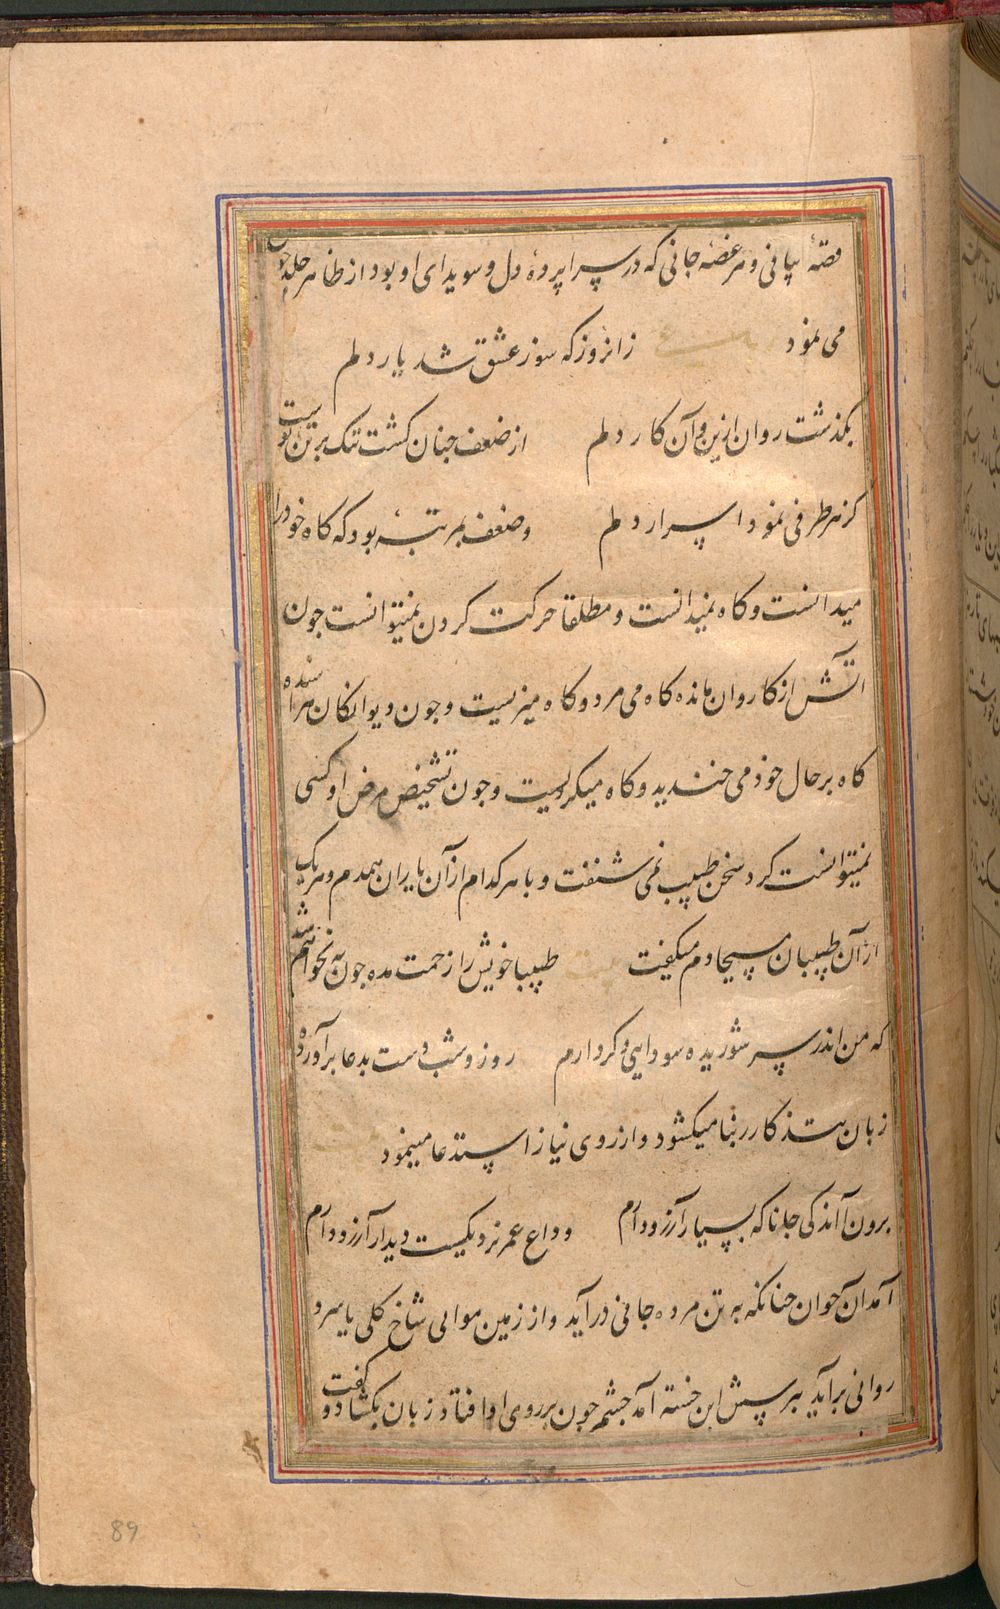 قصهٔ پنهانی و هر غصهٔ جانی که در سراپردهٔ دل و سویدای او بود از ظاهر جلد چون
می نمود زانروز که سوز عشق شد یار دلم
بکذشت روان ازین و آن کار دلم از ضعف جنان کشت تنک بر تن پوست
کز هر طرفی نمود اسرار دلم و ضعف بمرتبهٔ بود که کاه خود را
میدانست و کاه نمیدانست و مطلقا حرکت کردن نمیتوانست جون
آتش از کاروان مانده کاه می مرد و کاه میزیست و جون دیوانکان هرزه خنده
کاه بر حال خود می خندید و کاه میکریست و جون تشخیص مرض او کسی
نمیتوانست کرد سخن طبیب نمی شنفت و با هر کدام از آن یاران همدم و هر یک
از آن طبیبان مسیحا دم میکفت طبیبا خویش را زحمت مده جون به نخواهم شد
که من اندر سر شوریده سودایی دکر دارم روز و شب دست بدعا برآورده
زبان بتذکار ربنا میکشود و از روی نیاز استدعا مینمود
برون آ اندکی جانا که بسیار آرزو دارم وداع عمر نزدیکست دیدار آرزو دارم
آمد آن جوان جنانکه به تن مرده جانی درآید و از زمین موالی شاخ کلی یا سرو
روانی برآید بپرسش این خسته آمد جشم جون بر روی او افتاد زبان بکشاد و کفت
89